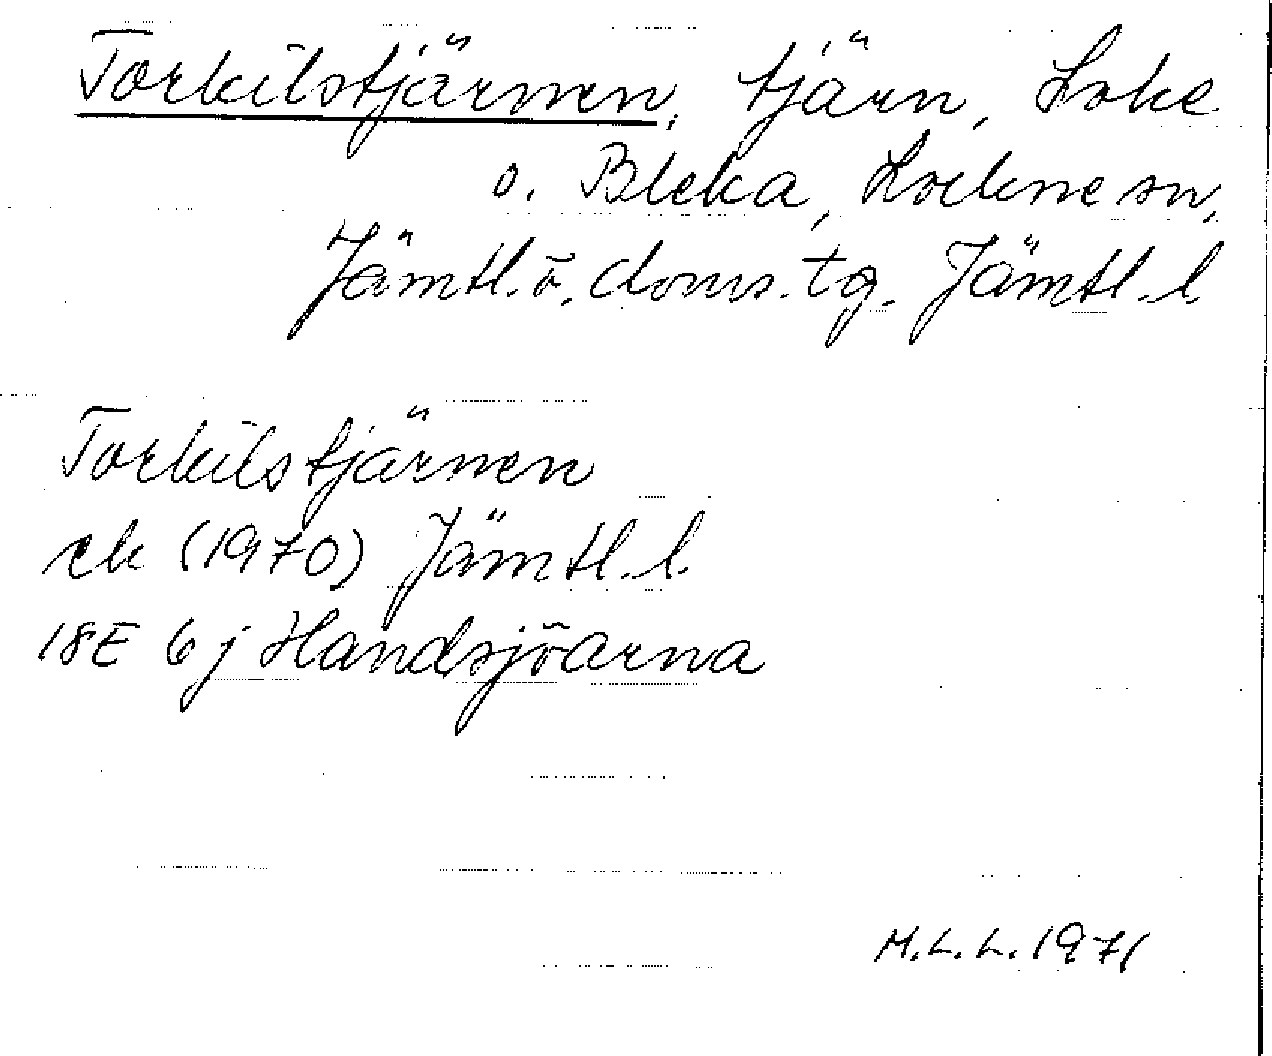 Torkilstjärnen, tjärn, Loke
o. Bleka, Lockne sn,
Jämtl. ö. doms. tg. Jämtl. l.
Torkilstjärnen
ek (1970) Jämtl. l.
18E 6j Handsjöarna
M.L.L. 1971